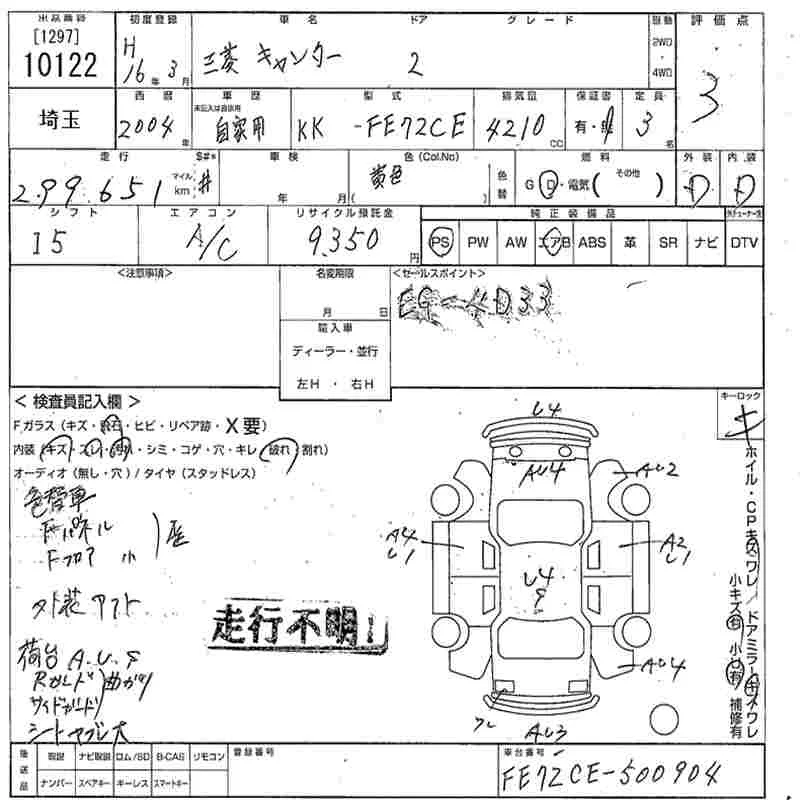 出品番号 初度登録 車名 ドア グレード 駆動 評価点
[1297] 10122 H 16年 3月 三菱 キャンター 2 2WD・4WD 3
埼玉 西暦 車歴 型式 排気量 保証書 定員
未記入は自家用
2004年 自家用 KK -FE72CE 4210CC 有・無 3名
走行 $#* 車検 色(Col.No) 燃料 外装 内装
299.651 マイル km # 年 月 黄色 ( ) 色替 G D・電気 (その他 ) D D
シフト エアコン リサイクル預託金 純正装備品
I5 A/C 9,350円 PS PW AW エアB ABS 革 SR ナビ DTV
<注意事項> 名変期限 <セールスポイント>
月 日
輸入車
ディーラー・並行
左H ・ 右H
< 検査員記入欄 > キーロック
Fガラス (キズ・飛石・ヒビ・リペア跡・X要)
内装 (キズ・スレ・汚れ・シミ・コゲ・穴・キレ・破れ・割れ)
オーディオ (無し・穴) / タイヤ (スタッドレス)
色替車
Fパネル
Fフロア 小
外装 アト
荷台 A.U.S
Rガード 曲がり
サイドガード
シートヤブレ大
走行不明!
U4
AU4
AU2
A4
U1
A2
U1
U4
S
AU4
AU3
キ
ホイル・CPキズワレ/ドアミラーキズワレ
小キズ有 小凹有 補修有
後送品 取説 ナビ取説 ロム/SD B-CAS リモコン 登録番号 車台番号
ナンバー スペアキー キーレス スマートキー FE72CE-500904